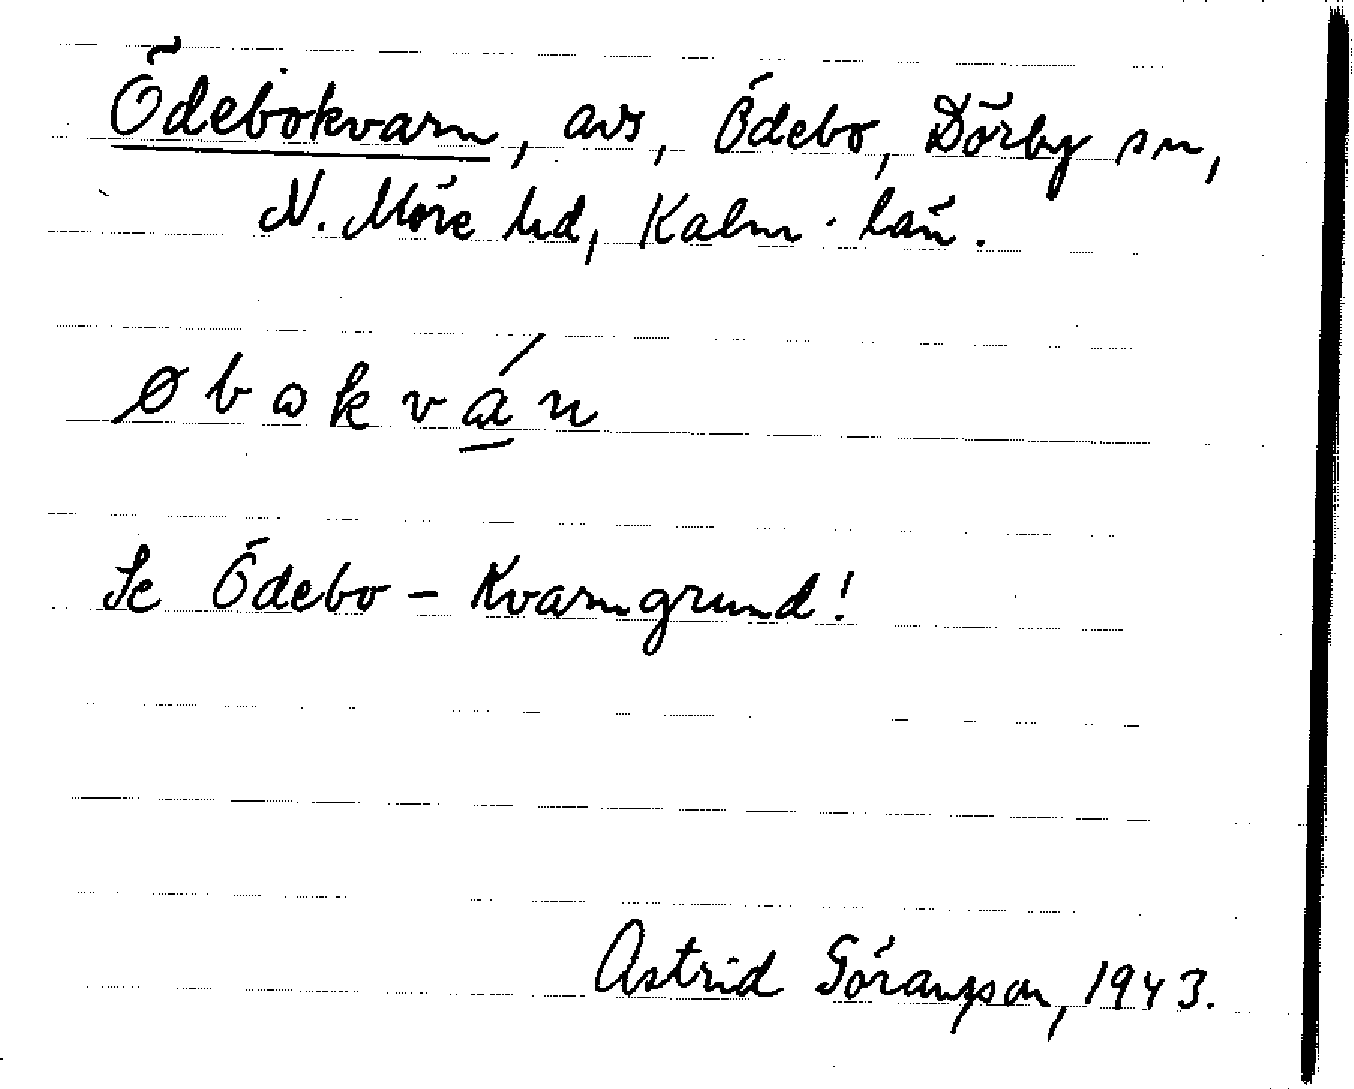 Ödebokvarn, avs, Ödebo, Dörby sn,
N. Möre hd, Kalm. län.
øbωkván
Se Ödebo - Kvarngrund!
Astrid Göranzson, 1943.